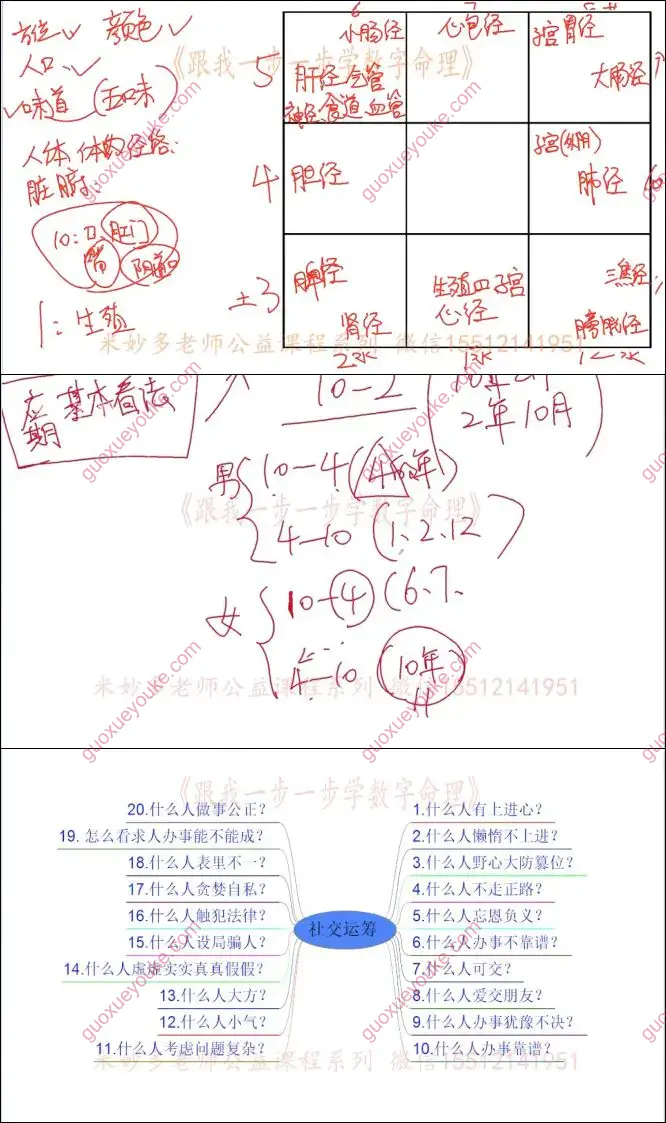 方位 颜色
人口
味道 (五味
人体 体的经络:
脏腑:
10:口 肛门
胃 阴道口
1:生殖
6 7
小肠经 心包经 子宫 胃经
5 肝经 气管 大肠经
神经、食道、血管
子宫(外阴)
4 胆经 肺经
土3 脾经 生殖 子宫 三焦经
肾经 心经 膀胱经
《跟我一步一步学数字命理》
米妙多老师公益课程系列 微信15512141951
guoxueyouke.com
guoxueyouke.com
guoxueyouke.com
应期 基本看法
10-2
2年10月
男 10-4
4-10 (1、2、12)
女 10-4 (6、7、
4-10 (10年
《跟我一步一步学数字命理》
米妙多老师公益课程系列 微信15512141951
guoxueyouke.com
guoxueyouke.com
guoxueyouke.com
《跟我一步一步学数字命理》
社交运筹
1.什么人有上进心?
2.什么人懒惰不上进?
3.什么人野心大防篡位?
4.什么人不走正路?
5.什么人忘恩负义?
6.什么人办事不靠谱?
7.什么人可交?
8.什么人爱交朋友?
9.什么人办事犹豫不决?
10.什么人办事靠谱?
11.什么人考虑问题复杂?
12.什么人小气?
13.什么人大方?
14.什么人虚虚实实真真假假?
15.什么人设局骗人?
16.什么人触犯法律?
17.什么人贪婪自私?
18.什么人表里不一?
19. 怎么看求人办事能不能成?
20.什么人做事公正?
米妙多老师公益课程系列 微信15512141951
guoxueyouke.com
guoxueyouke.com
guoxueyouke.com